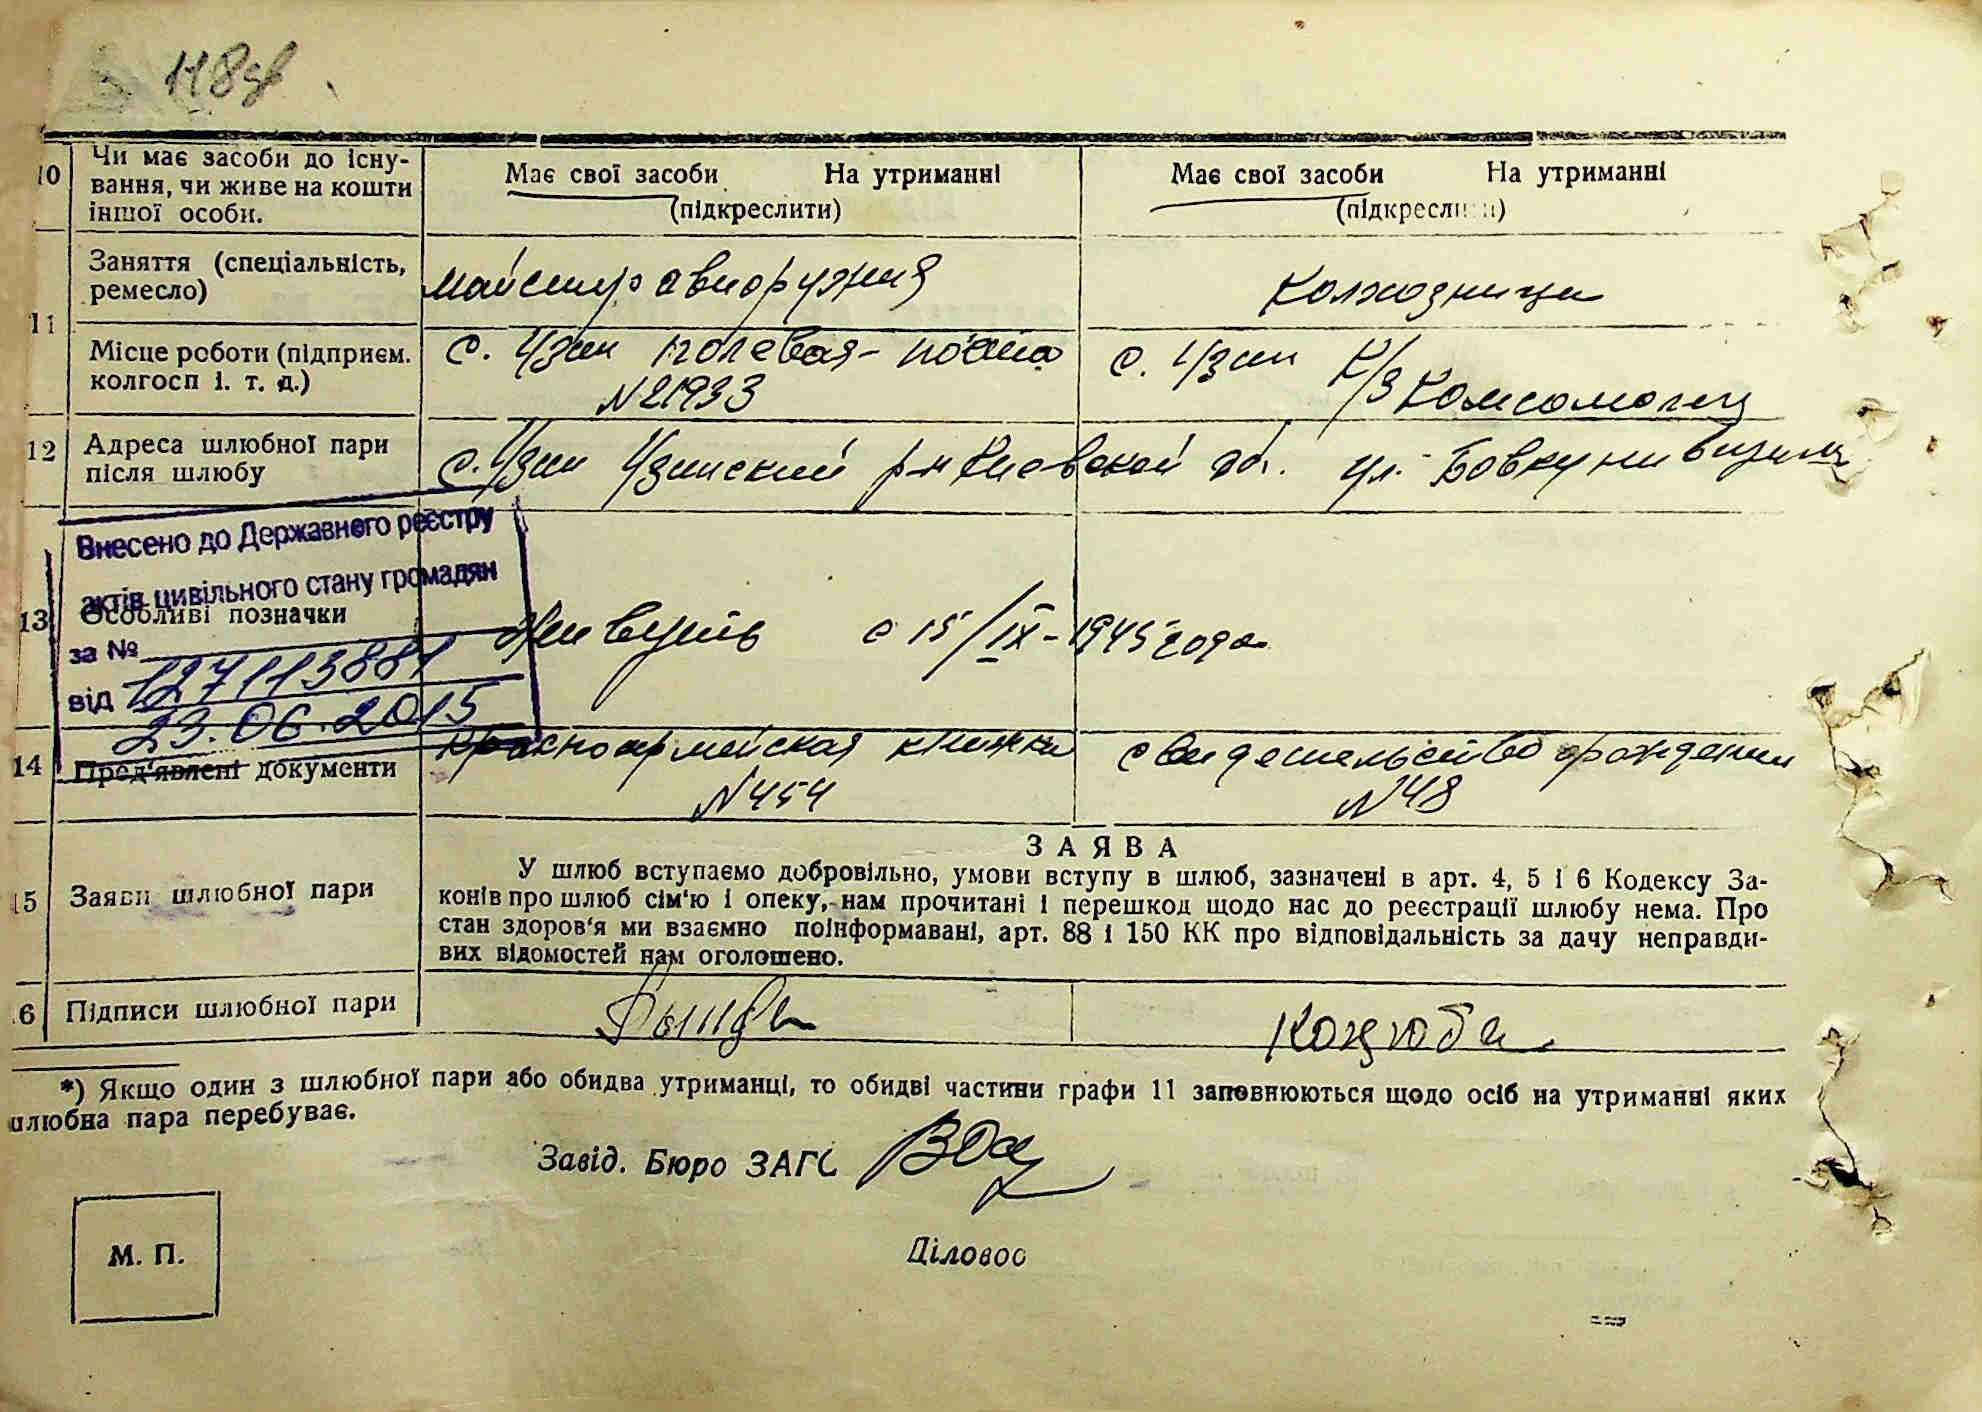 118зв
10 Чи має засоби до існу-
вання, чи живе на кошти
іншої особи.
Має свої засоби На утриманні
(підкреслити)
Має свої засоби На утриманні
(підкреслити)
11 Заняття (спеціальність,
ремесло)
майстер авиоружия
Колхозница
Місце роботи (підприєм.
колгосп і. т. д.)
с. Узин полевая-почта
№21933
с. Узин К/З Комсомолец
12 Адреса шлюбної пари
після шлюбу
с. Узин Узинский р-н Киевской обл. ул.
Внесено до Державного реєстру
актів цивільного стану громадян
за № 127113881
від 23.06.2015
13 Особливі позначки
Живуть с 15/IX-1945 года
14 Пред'явлені документи
красноармейская книжка
№454
свидетельство рождения
№48
15 Заяви шлюбної пари
ЗАЯВА
У шлюб вступаємо добровільно, умови вступу в шлюб, зазначені в арт. 4, 5 і 6 Кодексу За-
конів про шлюб сім'ю і опеку, нам прочитані і перешкод щодо нас до реєстрації шлюбу нема. Про
стан здоров'я ми взаємно поінформавані, арт. 88 і 150 КК про відповідальність за дачу неправди-
вих відомостей нам оголошено.
6 Підписи шлюбної пари
Коцюба
*) Якщо один з шлюбної пари або обидва утриманці, то обидві частини графи 11 заповнюються щодо осіб на утриманні яких
шлюбна пара перебуває.
Завід. Бюро ЗАГС
Діловод
М. П.